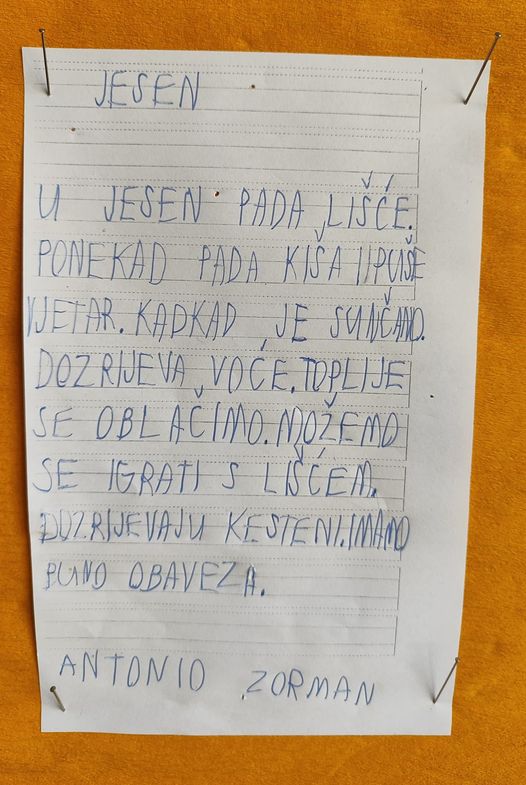 JESEN
U JESEN PADA LIŠĆE.
PONEKAD PADA KIŠA I PUŠE
VJETAR. KADKAD JE SUNČANO.
DOZRIJEVA VOĆE. TOPLIJE
SE OBLAČIMO. MOŽEMO
SE IGRATI S LIŠĆEM.
DOZRIJEVAJU KESTENI. IMAMO
PUNO OBAVEZA.
ANTONIO ZORMAN